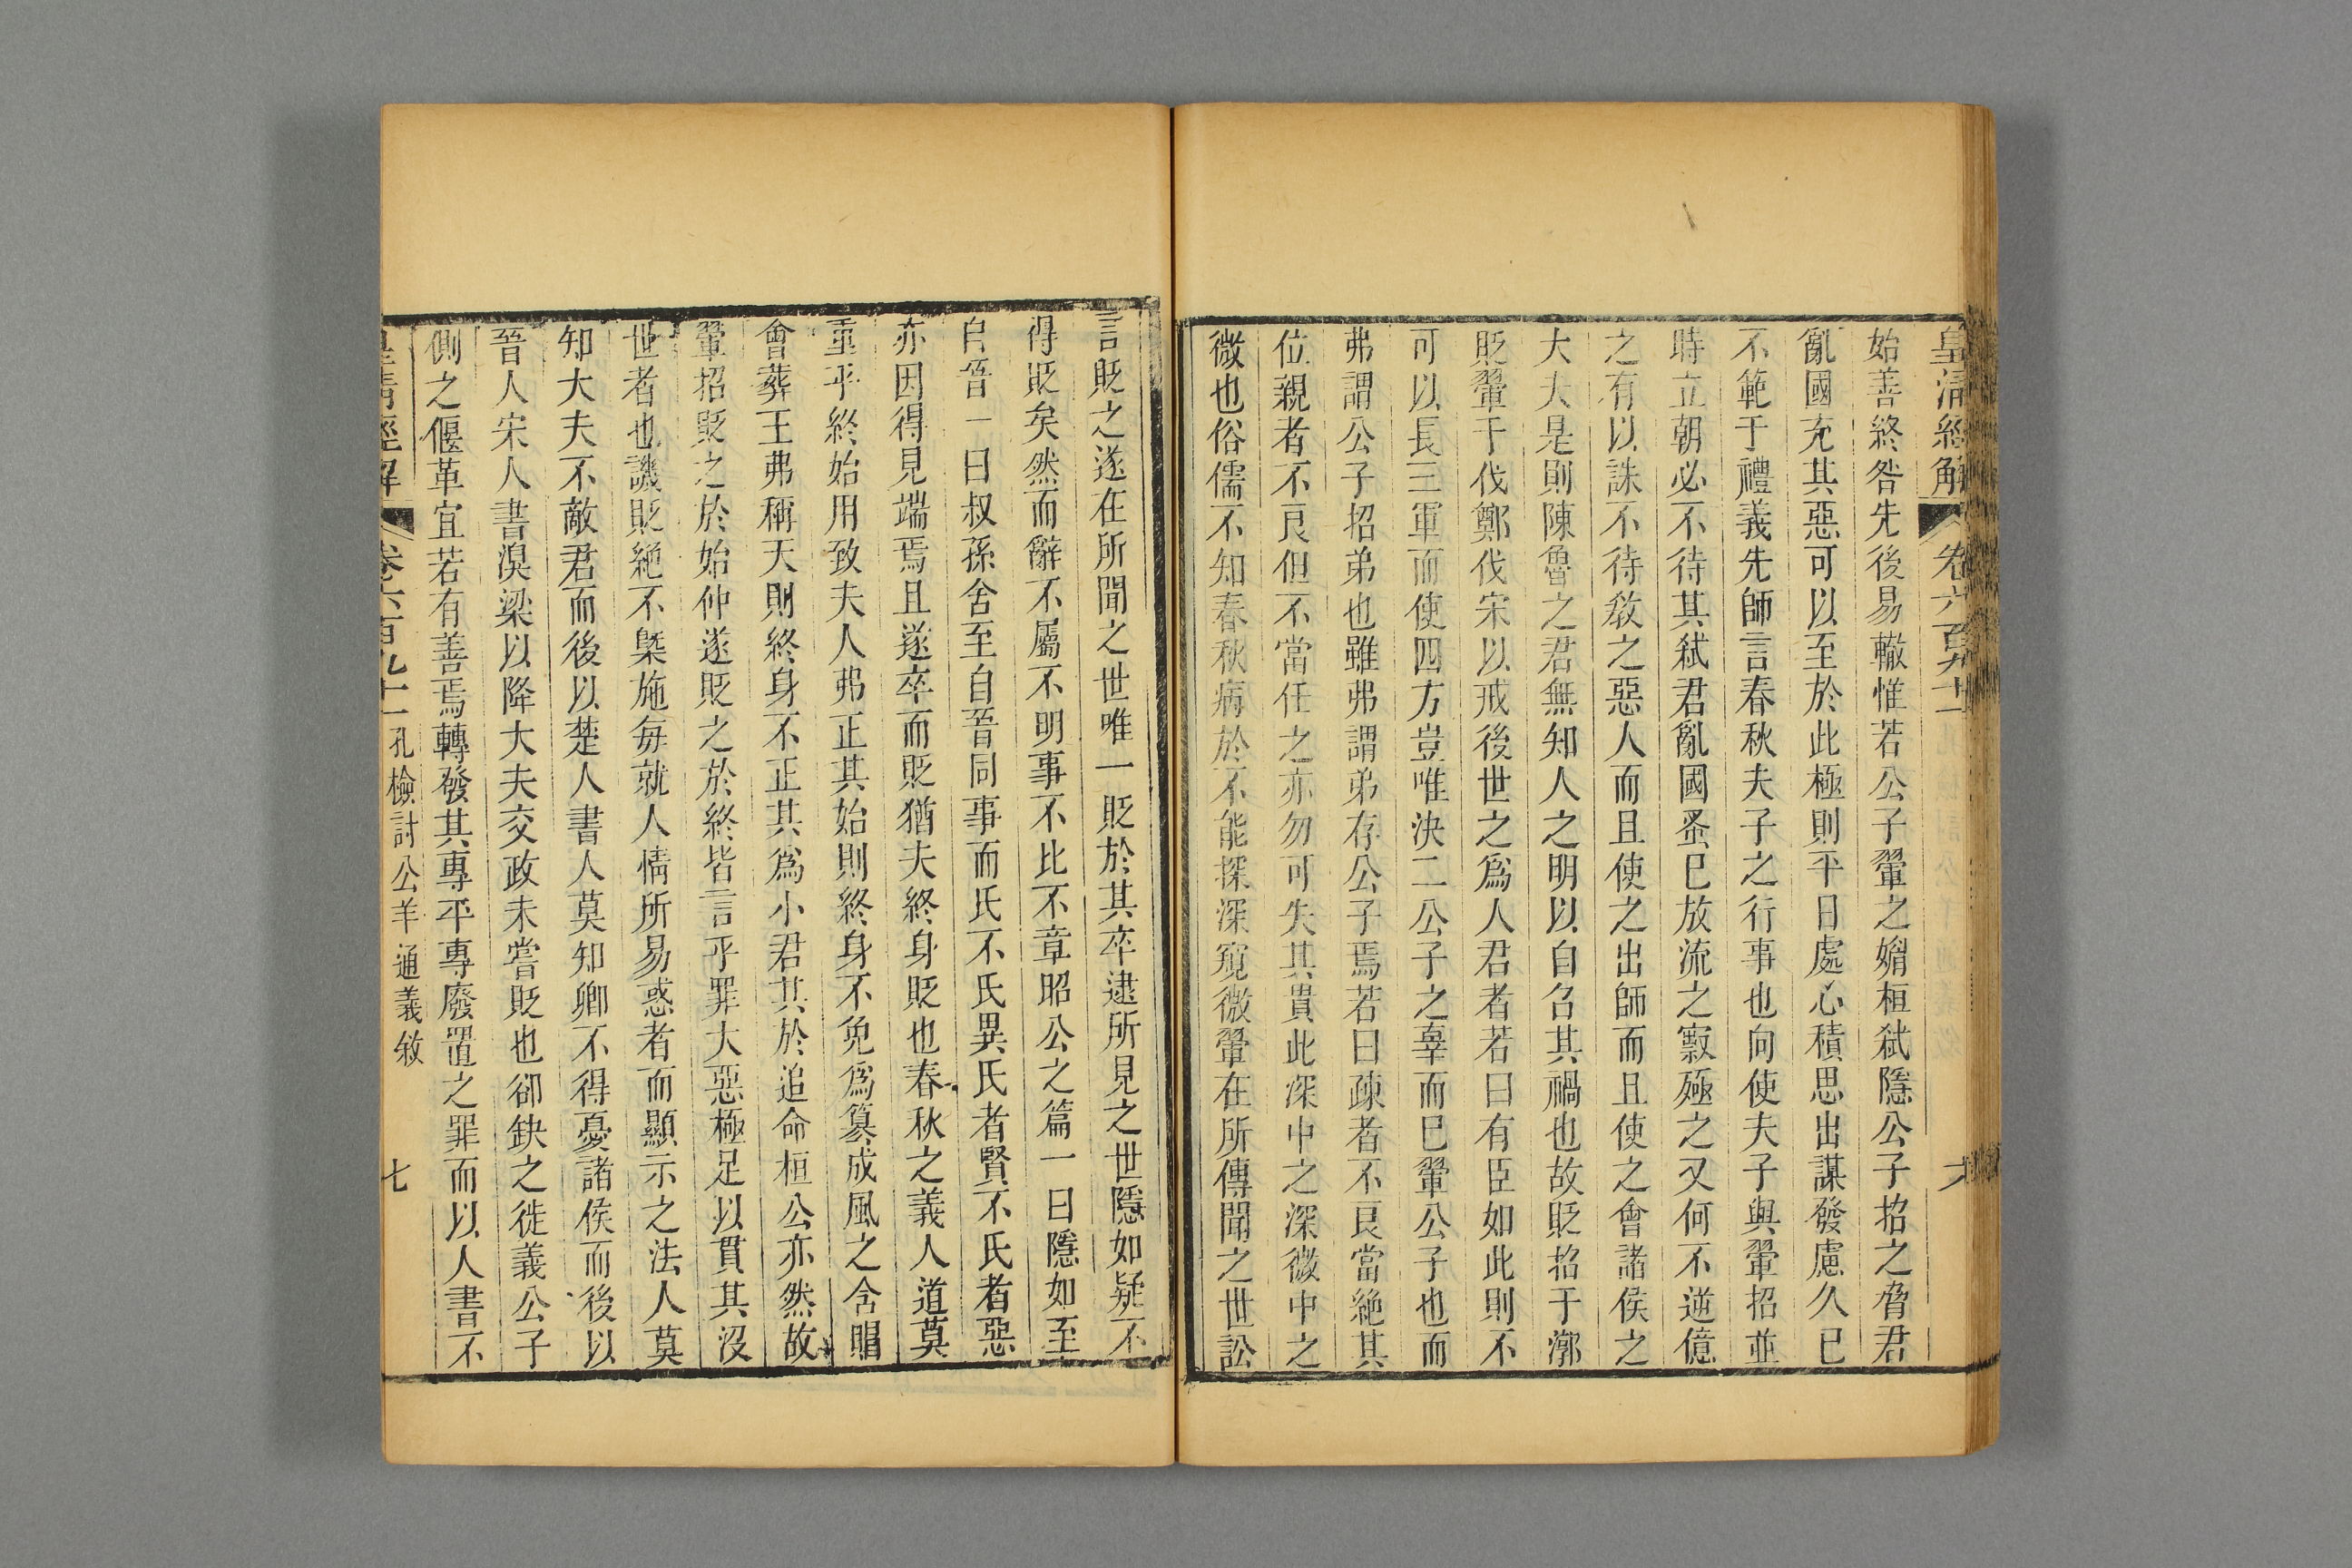 皇清經解 卷六百九十一 六
始善終咎先後易轍惟若公子翬之媚桓弑隱公子招之脅君
亂國充其惡可以至於此極則平日處心積思出謀發慮久已
不範于禮義先師言春秋夫子之行事也向使夫子與翬招並
時立朝必不待其弑君亂國蚤已放流之竄殛之又何不逆億
之有以誅不待教之惡人而且使之出師而且使之會諸侯之
大夫是則陳魯之君無知人之明以自召其禍也故貶招于漷
貶翬于伐鄭伐宋以戒後世之爲人君者若曰有臣如此則不
可以長三軍而使四方豈唯決二公子之辠而已翬公子也而
弗謂公子招弟也雖弗謂弟存公子焉若曰疎者不良當絶其
位親者不良但不當任之亦勿可失其貴此深中之深微中之
微也俗儒不知春秋病於不能探深窺微翬在所傳聞之世訟
言貶之遂在所聞之世唯一貶於其卒逮所見之世隱如疑不
得貶矣然而辭不屬不明事不比不章昭公之篇一曰隱如至
自晉一曰叔孫舍至自晉同事而氏不氏異氏者賢不氏者惡
亦因得見端焉且遂卒而貶猶夫終身貶也春秋之義人道莫
重乎終始用致夫人弗正其始則終身不免爲篡成風之含賵
會葬王弗稱天則終身不正其爲小君其於追命桓公亦然故
翬招貶之於始仲遂貶之於終皆言乎罪大惡極足以貫其沒
世者也譏貶絶不槩施每就人情所易惑者而顯示之法人莫
知大夫不敵君而後以楚人書人莫知卿不得憂諸侯而後以
晉人宋人書湨梁以降大夫交政未嘗貶也郤缺之徙義公子
側之偃革宜若有善焉轉發其專平專廢置之罪而以人書不
皇清經解 卷六百九十一 孔檢討公羊通義敘 七